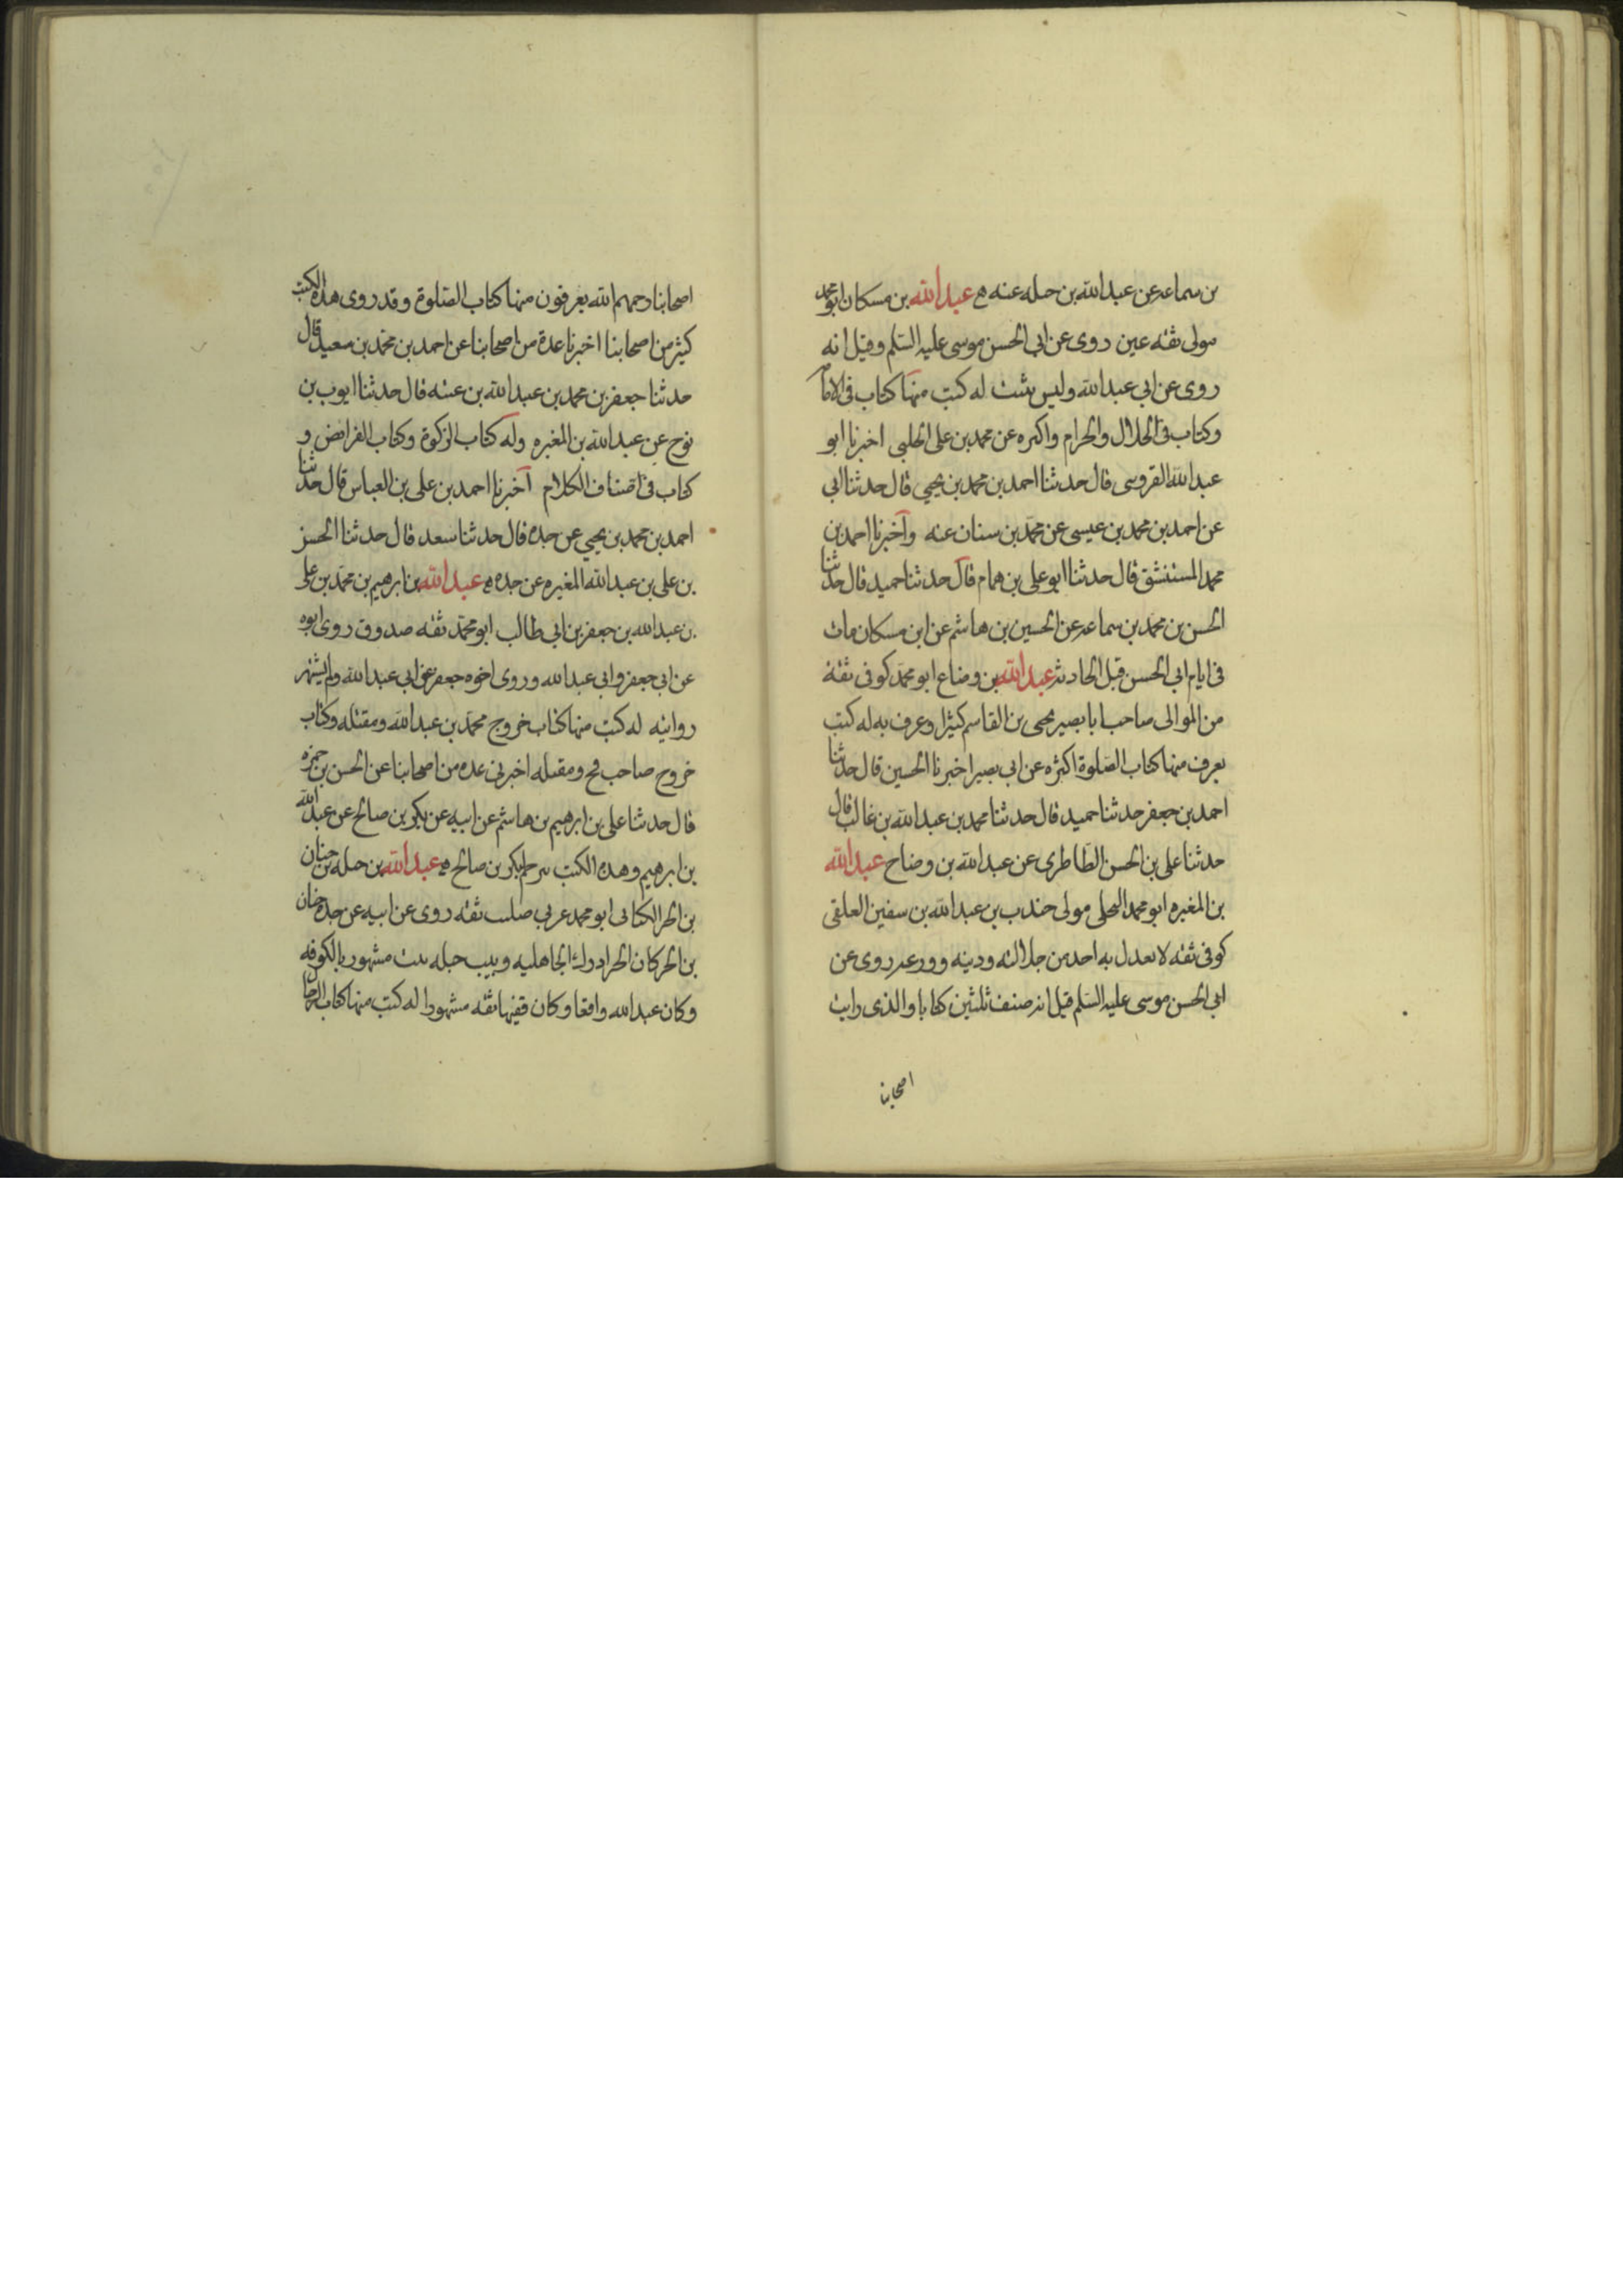 بن سماعه عن عبدالله بن جبله عنه عبدالله بن مسكان ابو محمد
مولى ثقه عين روى عن ابى الحسن موسى عليه السلم وقيل انه
روى عن ابى عبدالله وليس بثبت له كتب منها كتاب فى الامامة
وكتاب فى الحلال والحرام واكثره عن محمد بن على الحلبى اخبرنا ابو
عبدالله القزوينى قال حدثنا احمد بن محمد بن يحيى قال حدثنا ابى
عن احمد بن محمد بن عيسى عن محمد بن سنان عنه واخبرنا احمد بن
محمد المستنشق قال حدثنا ابو على بن همام قال حدثنا حميد قال حدثنا
الحسن بن محمد بن سماعه عن الحسين بن هاشم عن ابن مسكان مات
فى ايام ابى الحسن قبل الحادثه عبدالله بن وضاح ابو محمد كوفى ثقة
من الموالى صاحب ابا بصير يحيى بن القاسم كثيرا وعرف به له كتب
يعرف منها كتاب الصلوة اكثره عن ابى بصير اخبرنا الحسين قال حدثنا
احمد بن جعفر حدثنا حميد قال حدثنا محمد بن عبدالله بن غالب قال
حدثنا على بن الحسن الطاطرى عن عبدالله بن وضاح عبدالله
بن المغيره ابو محمد البجلى مولى جندب بن عبدالله بن سفين العلقى
كوفى ثقه لا يعدل به احد من جلالته ودينه وورعه روى عن
ابى الحسن موسى عليه السلم قيل انه صنف ثلثين كتابا والذى رايت
اصحابنا
اصحابنا رحمهم الله يعرفون منها كتاب الصلوة وقد روى هذه الكتب
كثير من اصحابنا اخبرنا عدة من اصحابنا عن احمد بن محمد بن سعيد قال
حدثنا جعفر بن محمد بن عبدالله بن عتبه قال حدثنا ايوب بن
نوح عن عبدالله بن المغيره وله كتاب الزكوة وكتاب الفرائض و
كتاب فى اصناف الكلام اخبرنا احمد بن على بن العباس قال حدثنا
احمد بن محمد بن يحيى عن جده قال حدثنا سعد قال حدثنا الحسن
بن على بن عبدالله المغيره عن جده عبدالله بن ابرهيم بن محمد بن على
بن عبدالله بن جعفر بن ابى طالب ابو محمد ثقه صدوق روى ابوه
عن ابى جعفر وابى عبدالله وروى اخوه جعفر عن ابى عبدالله ولم يشتهر
روايته له كتب منها كتاب خروج محمد بن عبدالله ومقتله وكتاب
خروج صاحب فخ ومقتله اخبرنى عده من اصحابنا عن الحسن بن حمزه
قال حدثنا على بن ابرهيم بن هاشم عن ابيه عن بكر بن صالح عن عبدالله
بن ابرهيم وهذه الكتب بكر بن صالح عبدالله بن جبله بن حنان
بن الحر الكنانى ابو محمد عربى صليب ثقه روى عن ابيه عن جده حنان
بن الحر كان الحر ادرك الجاهليه وبيت جبله بيت مشهور بالكوفه
وكان عبدالله واقفا وكان فقيها ثقه مشهورا له كتب منها كتاب الرجال